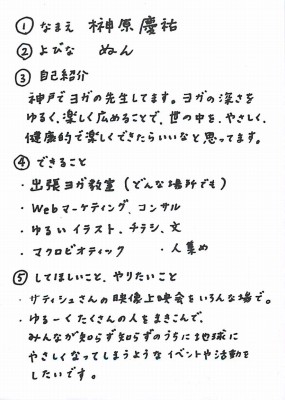 ① なまえ 榊原慶祐
② よびな ぬん
③ 自己紹介
神戸でヨガの先生してます。ヨガの深さを
ゆるく、楽しく広めることで、世の中を、やさしく、
健康的で楽しくできたらいいなと思ってます。
④ できること
・出張ヨガ教室(どんな場所でも)
・Webマーケティング、コンサル
・ゆるいイラスト、チラシ、文
・マクロビオティック ・人集め
⑤ してほしいこと、やりたいこと
・サティシュさんの映像上映会をいろんな場で。
・ゆるーくたくさんの人をまきこんで、
みんなが知らず知らずのうちに地球に
やさしくなってしまうようなイベントや活動を
したいです。